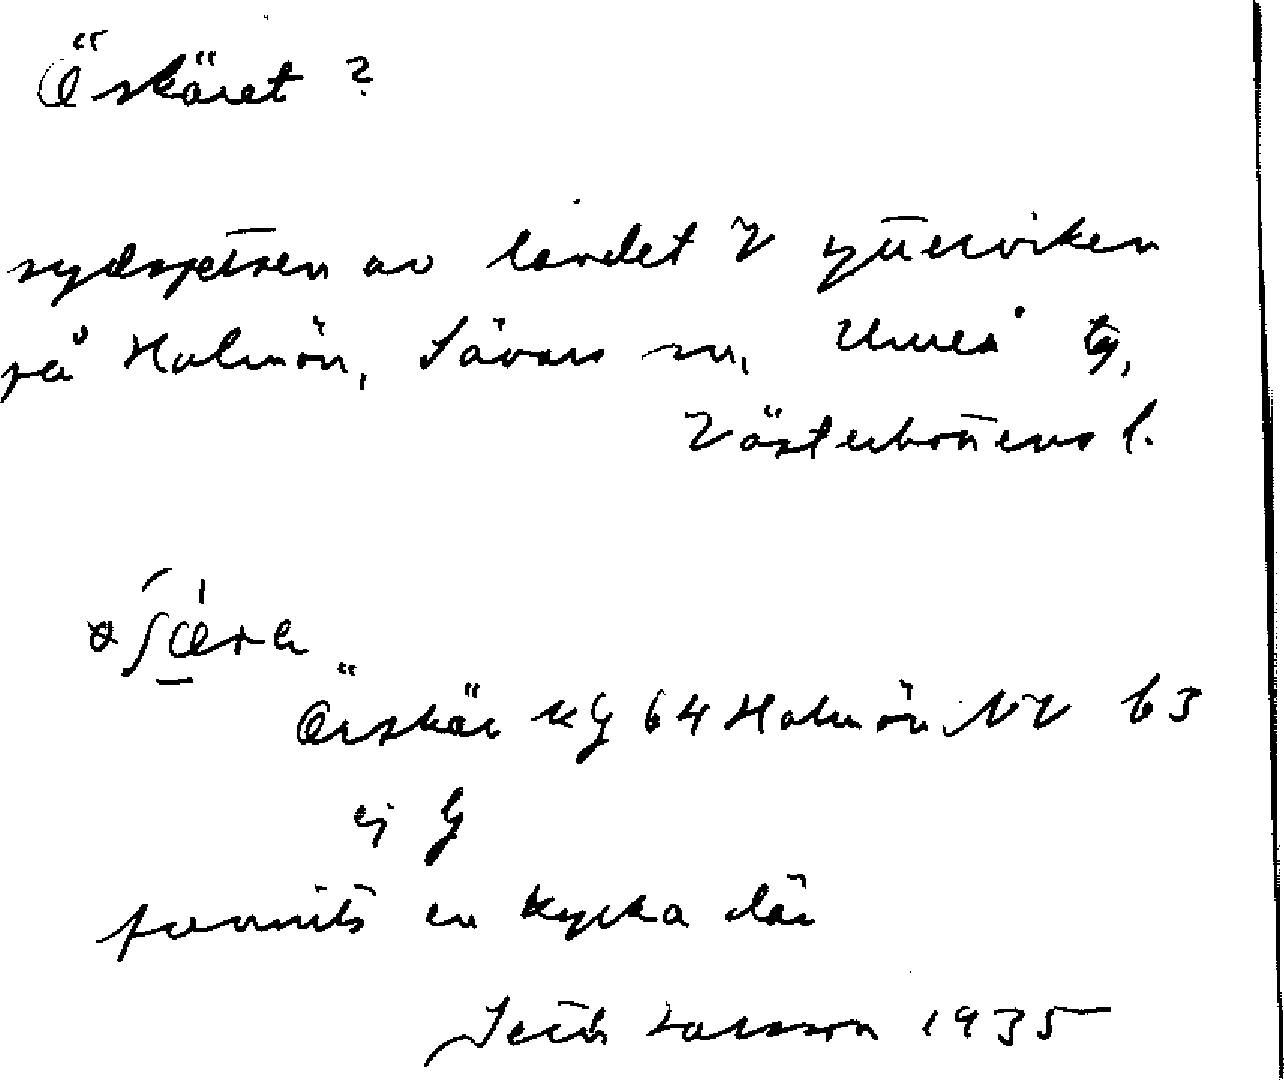 Öskäret ?
sydspetsen av landet V ytterviken
på Holmön, Sävars sn, Umeå tg,
Västerbottens l.
Örskär KG 64 Holmön NV 63
ej G
funnits en kyrka där
Larsson 1935